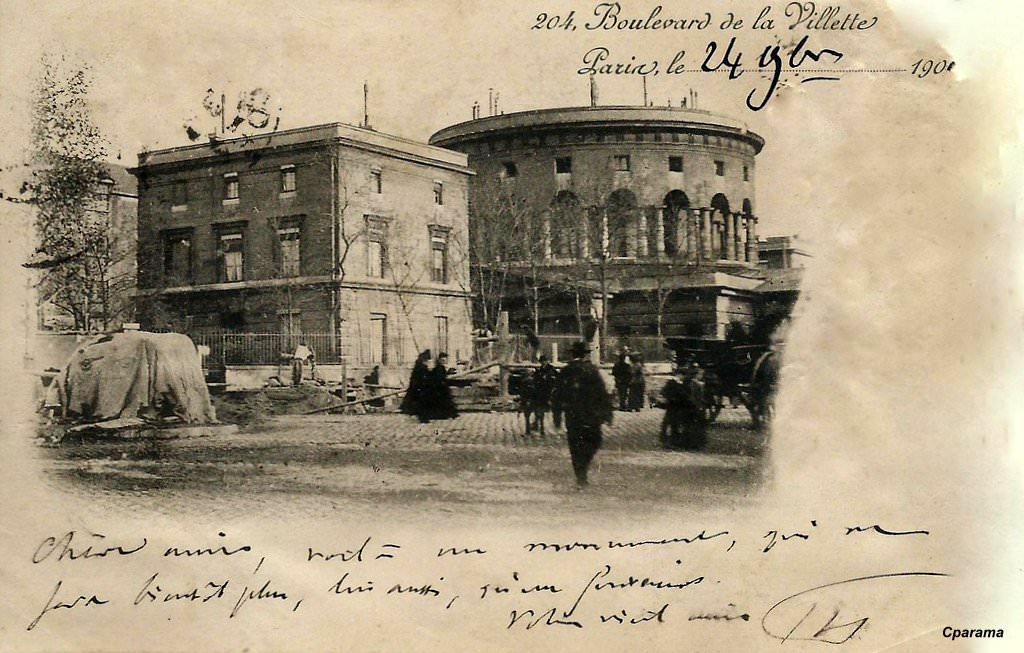 204, Boulevard de la Villette
Paris, le 24 9bre 190
Chère amie, voilà un monument, qui ne
sera bientôt plus, lui aussi, qu'un souvenir.
Votre vieil ami
Cparama